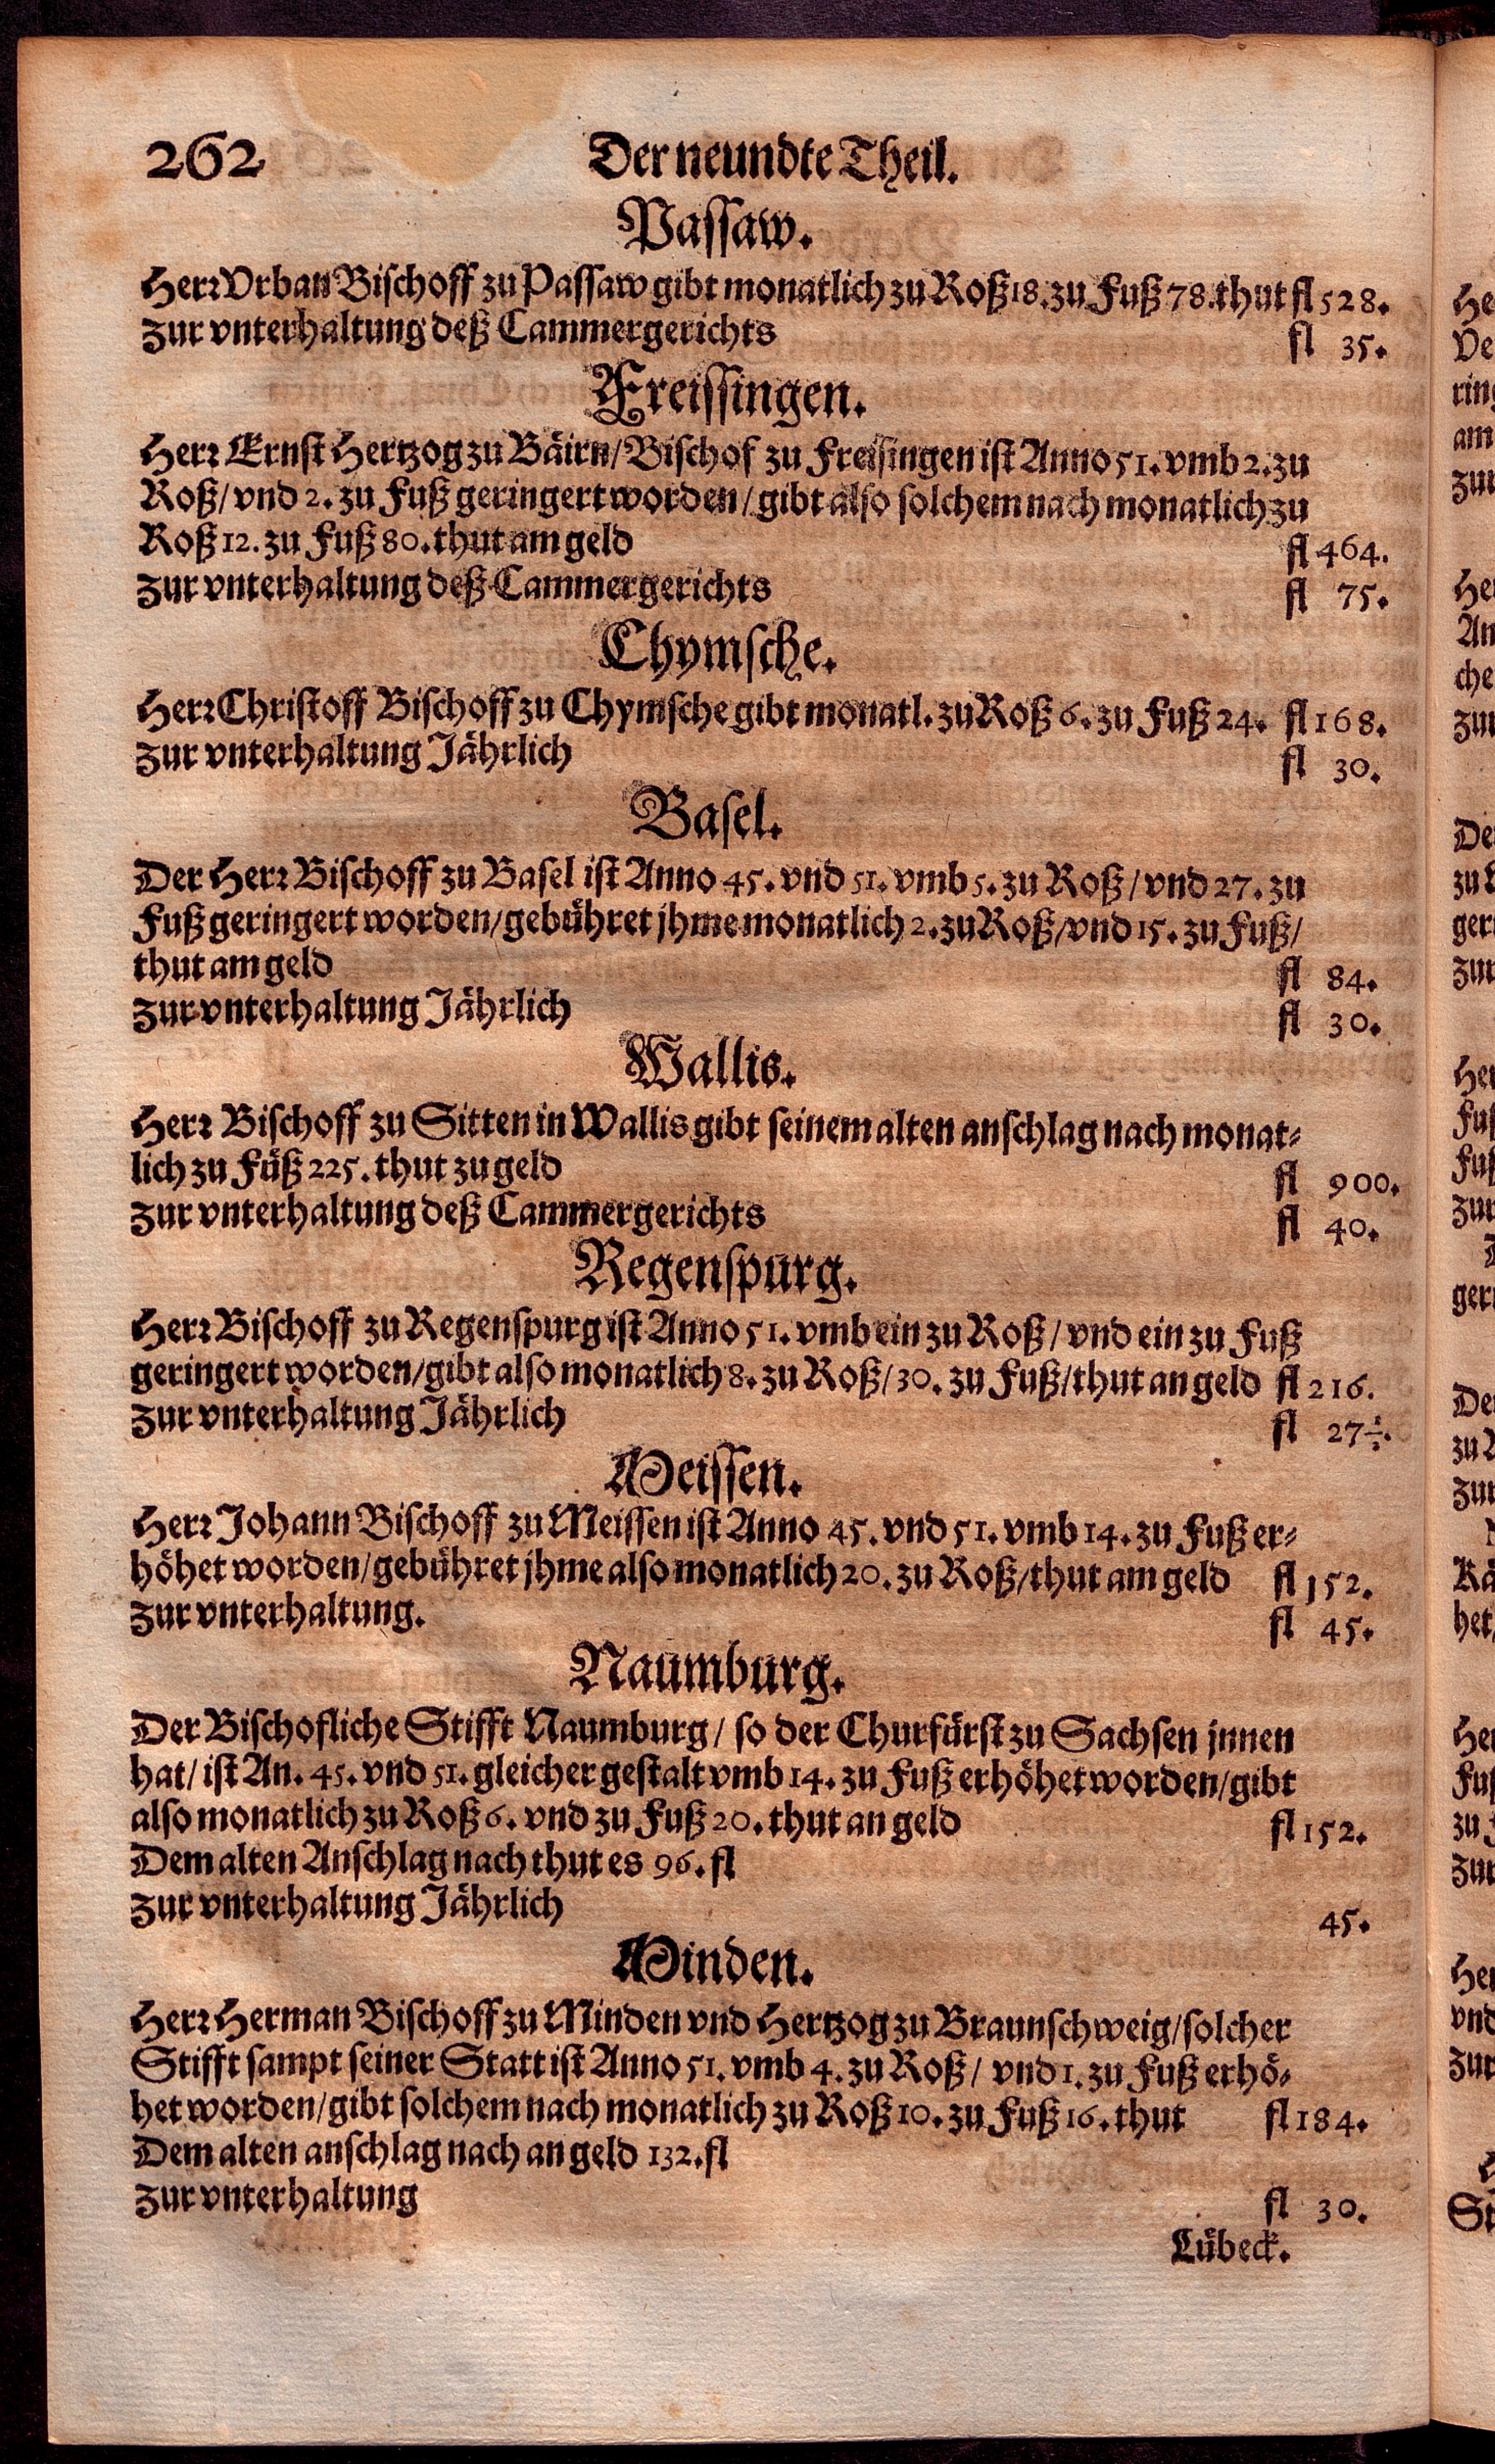 262 Der neundte Theil.
Passaw.
Herr Vrban Bischoff zu Passaw gibt monatlich zu Roß 18. zu Fuß 78. thut fl 528.
zur vnterhaltung deß Cammergerichts fl 35.
Freissingen.
Herr Ernst Hertzog zu Bäirn/ Bischof zu Freisingen ist Anno 51. vmb 2. zu
Roß/ vnd 2. zu Fuß geringert worden/ gibt also solchem nach monatlich zu
Roß 12. zu Fuß 80. thut am geld fl 464.
zur vnterhaltung deß Cammergerichts fl 75.
Chymsche.
Herr Christoff Bischoff zu Chymsche gibt monatl. zu Roß 6. zu Fuß 24. fl 168.
zur vnterhaltung Jährlich fl 30.
Basel.
Der Herr Bischoff zu Basel ist Anno 45. vnd 51. vmb 5. zu Roß/ vnd 27. zu
Fuß geringert worden/ gebühret jhme monatlich 2. zu Roß/ vnd 15. zu Fuß/
thut am geld fl 84.
zur vnterhaltung Jährlich fl 30.
Wallis.
Herr Bischoff zu Sitten in Wallis gibt seinem alten anschlag nach monat-
lich zu Füß 225. thut zu geld fl 900.
zur vnterhaltung deß Cammergerichts fl 40.
Regenspurg.
Herr Bischoff zu Regenspurg ist Anno 51. vmb ein zu Roß/ vnd ein zu Fuß
geringert worden/ gibt also monatlich 8. zu Roß/ 30. zu Fuß/ thut an geld fl 216.
zur vnterhaltung Jährlich fl 27½.
Meissen.
Herr Johann Bischoff zu Meissen ist Anno 45. vnd 51. vmb 14. zu Fuß er-
höhet worden/ gebühret jhme also monatlich 20. zu Roß/ thut am geld fl 152.
zur vnterhaltung. fl 45.
Naumburg.
Der Bischofliche Stifft Naumburg/ so der Churfürst zu Sachsen jnnen
hat/ ist An. 45. vnd 51. gleicher gestalt vmb 14. zu Fuß erhöhet worden/ gibt
also monatlich zu Roß 6. vnd zu Fuß 20. thut an geld fl 152.
Dem alten Anschlag nach thut es 96. fl
zur vnterhaltung Jährlich 45.
Minden.
Herr Herman Bischoff zu Minden vnd Hertzog zu Braunschweig/ solcher
Stifft sampt seiner Statt ist Anno 51. vmb 4. zu Roß/ vnd 1. zu Fuß erhö-
het worden/ gibt solchem nach monatlich zu Roß 10. zu Fuß 16. thut fl 184.
Dem alten anschlag nach an geld 132. fl
zur vnterhaltung fl 30.
Lübeck.